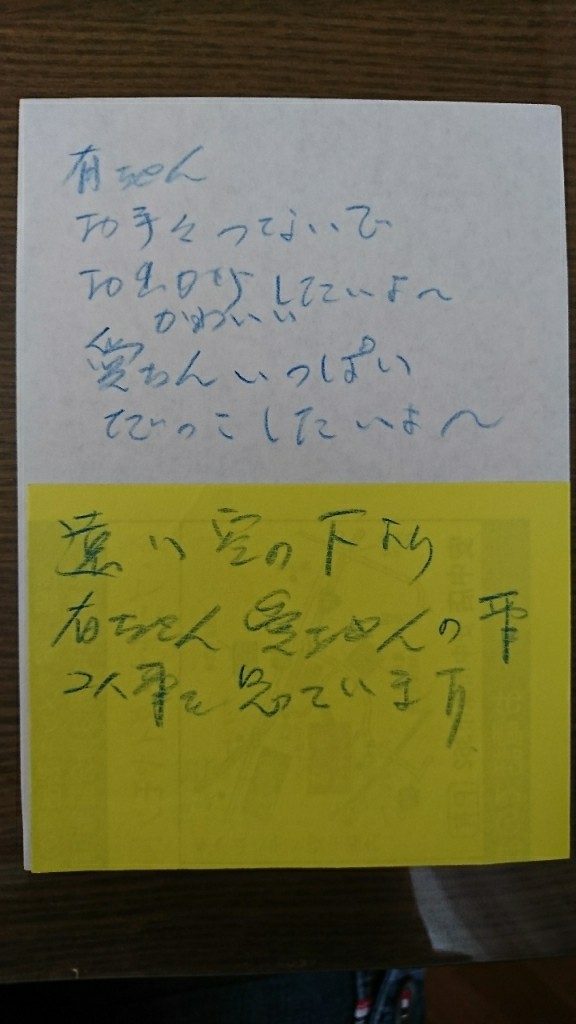 有ちゃん
お手々つないで
お出かけしたいよ〜
かわいい
愛ちゃんいっぱい
だっこしたいよ〜
遠い空の下より
有ちゃん愛ちゃんの幸
を思っています